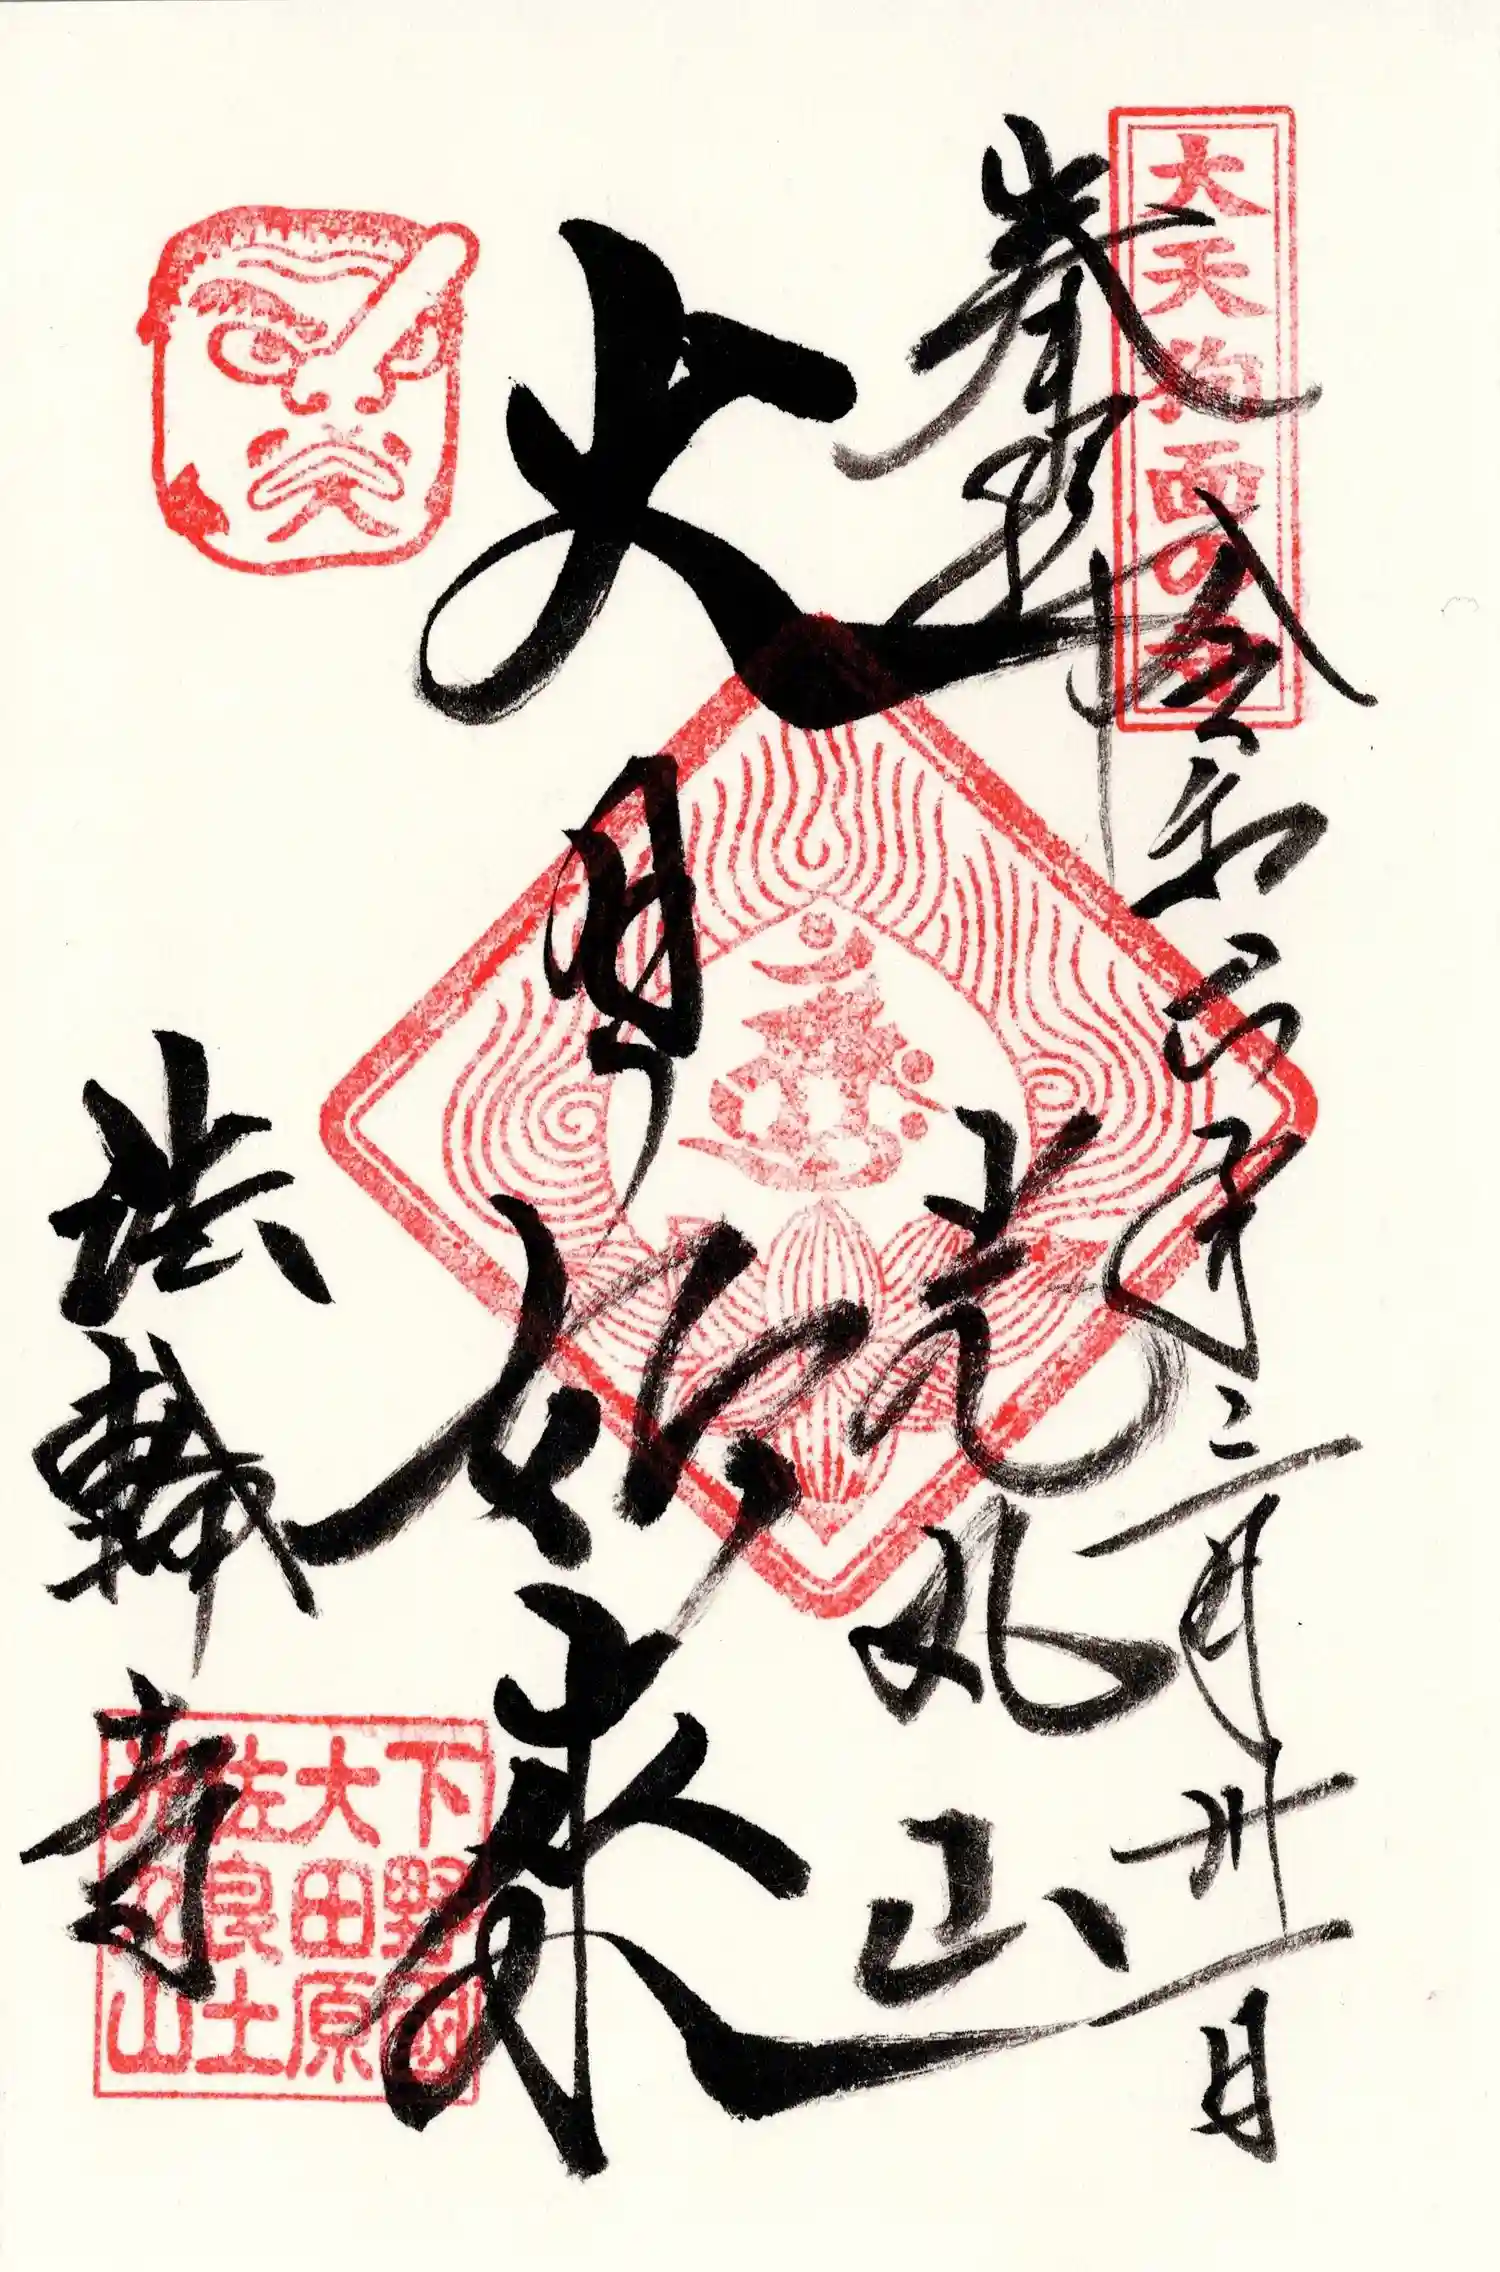 大天狗面の寺
奉拝
令和六年三月卅一日
光丸山
大日如来
法輪寺
下野國
大田原
佐良土
光丸山